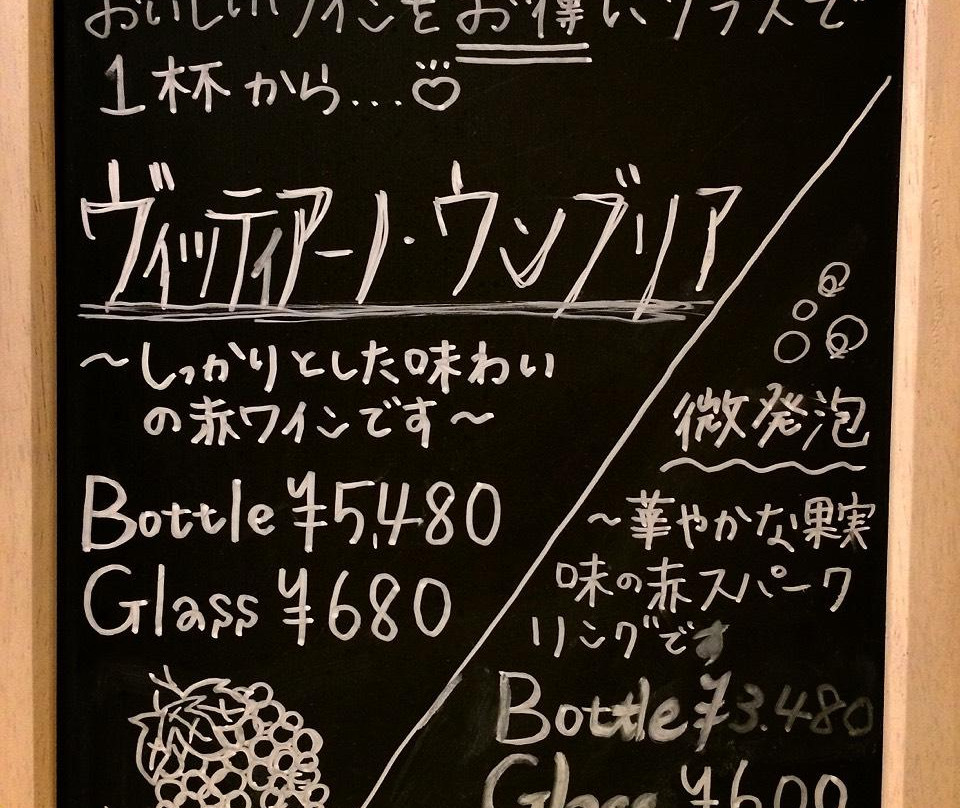 おいしいワインをお得にグラスで
1杯から...
ヴィッティアーノ・ウンブリア
~しっかりとした味わい
の赤ワインです~
Bottle ¥5,480
Glass ¥680
微発泡
~華やかな果実
味の赤スパーク
リングです
Bottle ¥3.480
Glass ¥600